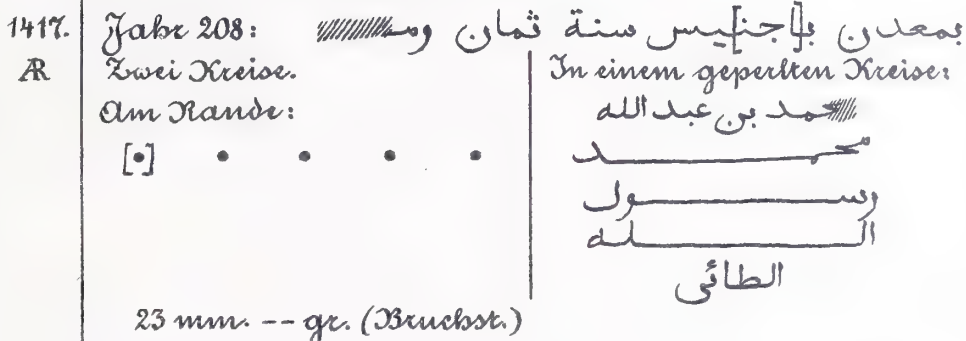 1417. Jahr 208: بمعدن با[جن]يس سنة ثمان ومـ
AR Zwei Kreise. In einem geperlten Kreise:
Am Rande: ـحمد بن عبد الله
[•] • • • • محمد
رسول
الله
الطائى
23 mm. -- gr. (Bruchst.)